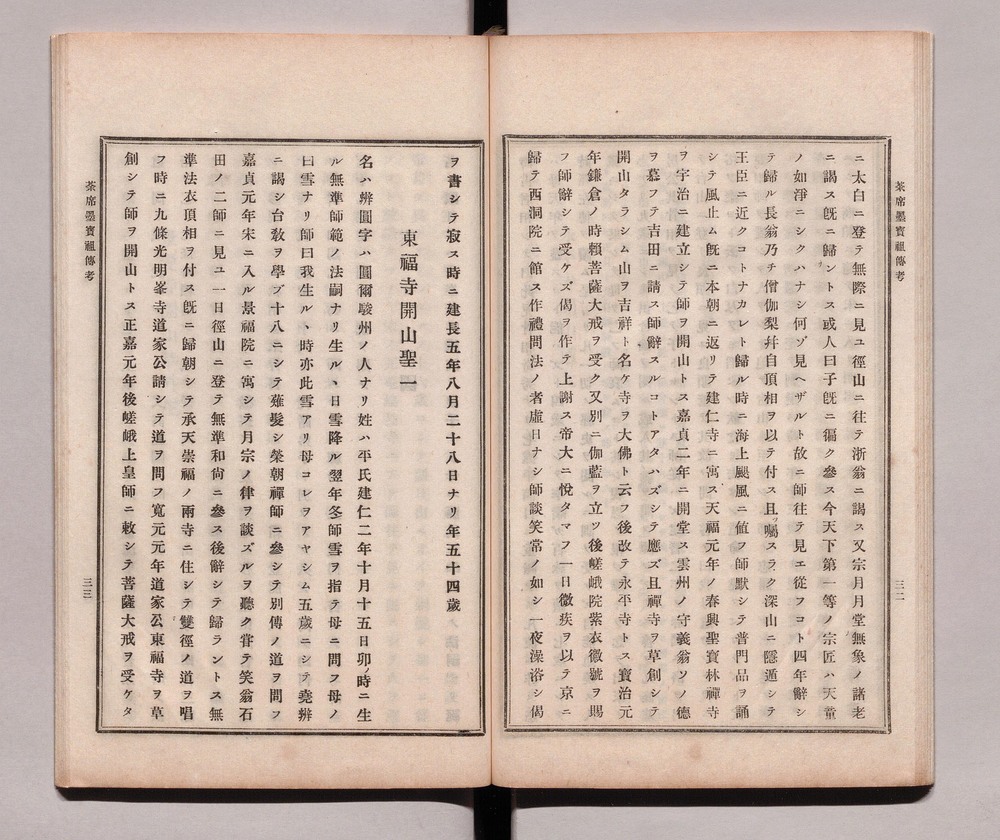 茶席墨寳祖傳考
ニ太白ニ登テ無際ニ見ユ徑山ニ往テ浙翁ニ謁ス又宗月月堂無象ノ諸老
ニ謁ス旣ニ歸ントス或人曰子旣ニ徧ク參ス今天下第一等ノ宗匠ハ天童
ノ如淨ニシクハナシ何ゾ見ヘザルト故ニ師往テ見エ從フコト四年辭シ
テ歸ル長翁乃チ僧伽梨幷自頂相ヲ以テ付ス且囑スラク深山ニ隱遁シテ
王臣ニ近クコトナカレト歸ル時ニ海上颶風ニ値フ師默シテ普門品ヲ誦
シテ風止ム旣ニ本朝ニ返リテ建仁寺ニ寓ス天福元年ノ春興聖寳林禪寺
ヲ宇治ニ建立シテ師ヲ開山トス嘉貞二年ニ開堂ス雲州ノ守義翁ソノ德
ヲ慕フテ吉田ニ請ス師辭スルコトアタハズシテ應ズ且禪寺ヲ草創シテ
開山タラシム山ヲ吉祥ト名ケ寺ヲ大佛ト云フ後改テ永平寺トス寳治元
年鎌倉ノ時賴菩薩大戒ヲ受ク又別ニ伽藍ヲ立ツ後嵯峨院紫衣徽號ヲ賜
フ師辭シテ受ケズ偈ヲ作テ上謝ス帝大ニ悅タマフ一日微疾ヲ以テ京ニ
歸テ西洞院ニ館ス作禮問法ノ者虛日ナシ師談笑常ノ如シ一夜澡浴シ偈
三二
ヲ書シテ寂ス時ニ建長五年八月二十八日ナリ年五十四歲
東福寺開山聖一
名ハ辨圓字ハ圓爾駿州ノ人ナリ姓ハ平氏建仁二年十月十五日卯ノ時ニ生
ル無準師範ノ法嗣ナリ生ルヽ日雪降ル翌年冬師雪ヲ指テ母ニ問フ母ノ
曰雪ナリ師曰我生ルヽ時亦此雪アリ母コレヲアヤシム五歲ニシテ堯辨
ニ謁シ台敎ヲ學ブ十八ニシテ薙髮シ榮朝禪師ニ參シテ別傳ノ道ヲ問フ
嘉貞元年宋ニ入ル景福院ニ寓シテ月宗ノ律ヲ談ズルヲ聽ク甞テ笑翁石
田ノ二師ニ見ユ一日徑山ニ登テ無準和尙ニ參ス後辭シテ歸ラントス無
準法衣頂相ヲ付ス旣ニ歸朝シテ承天崇福ノ兩寺ニ住シテ雙徑ノ道ヲ唱
フ時ニ九條光明峯寺道家公請シテ道ヲ問フ寬元元年道家公東福寺ヲ草
創シテ師ヲ開山トス正嘉元年後嵯峨上皇師ニ敕シテ菩薩大戒ヲ受ケタ
茶席墨寳祖傳考
三三